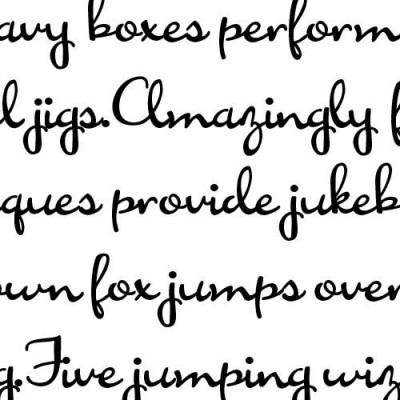 avy boxes perform
l jigs. Amazingly f
ques provide jukeb
own fox jumps over
g. Five jumping wiz